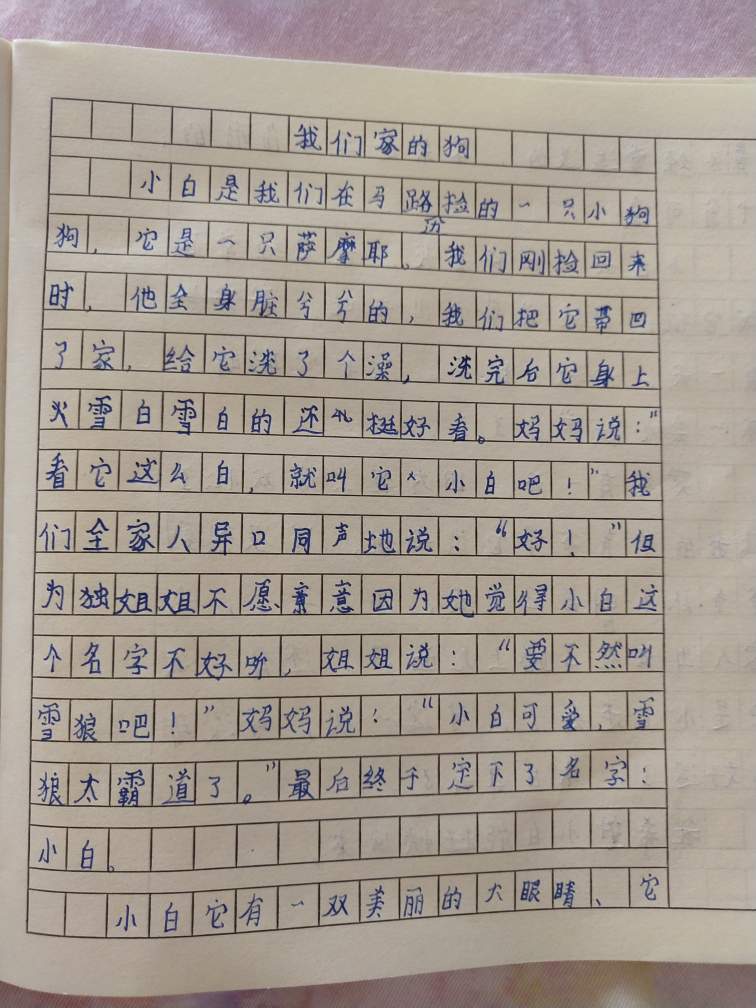 我们家的狗
小白是我们在马路捡的一只小狗
边
狗，它是一只萨摩耶。我们刚捡回来
时，他全身脏兮兮的，我们把它带回
了家，给它洗了个澡，洗完后它身上
火雪白雪白的还挺好看。妈妈说：“
看它这么白，就叫它小白吧！”我
们全家人异口同声地说：“好！”但
为独姐姐不愿意意因为她觉得小白这
个名字不好听，姐姐说：“要不然叫
雪狼吧！”妈妈说：“小白可爱，雪
狼太霸道了。”最后终于定下了名字：
小白。
小白它有一双美丽的大眼睛、它